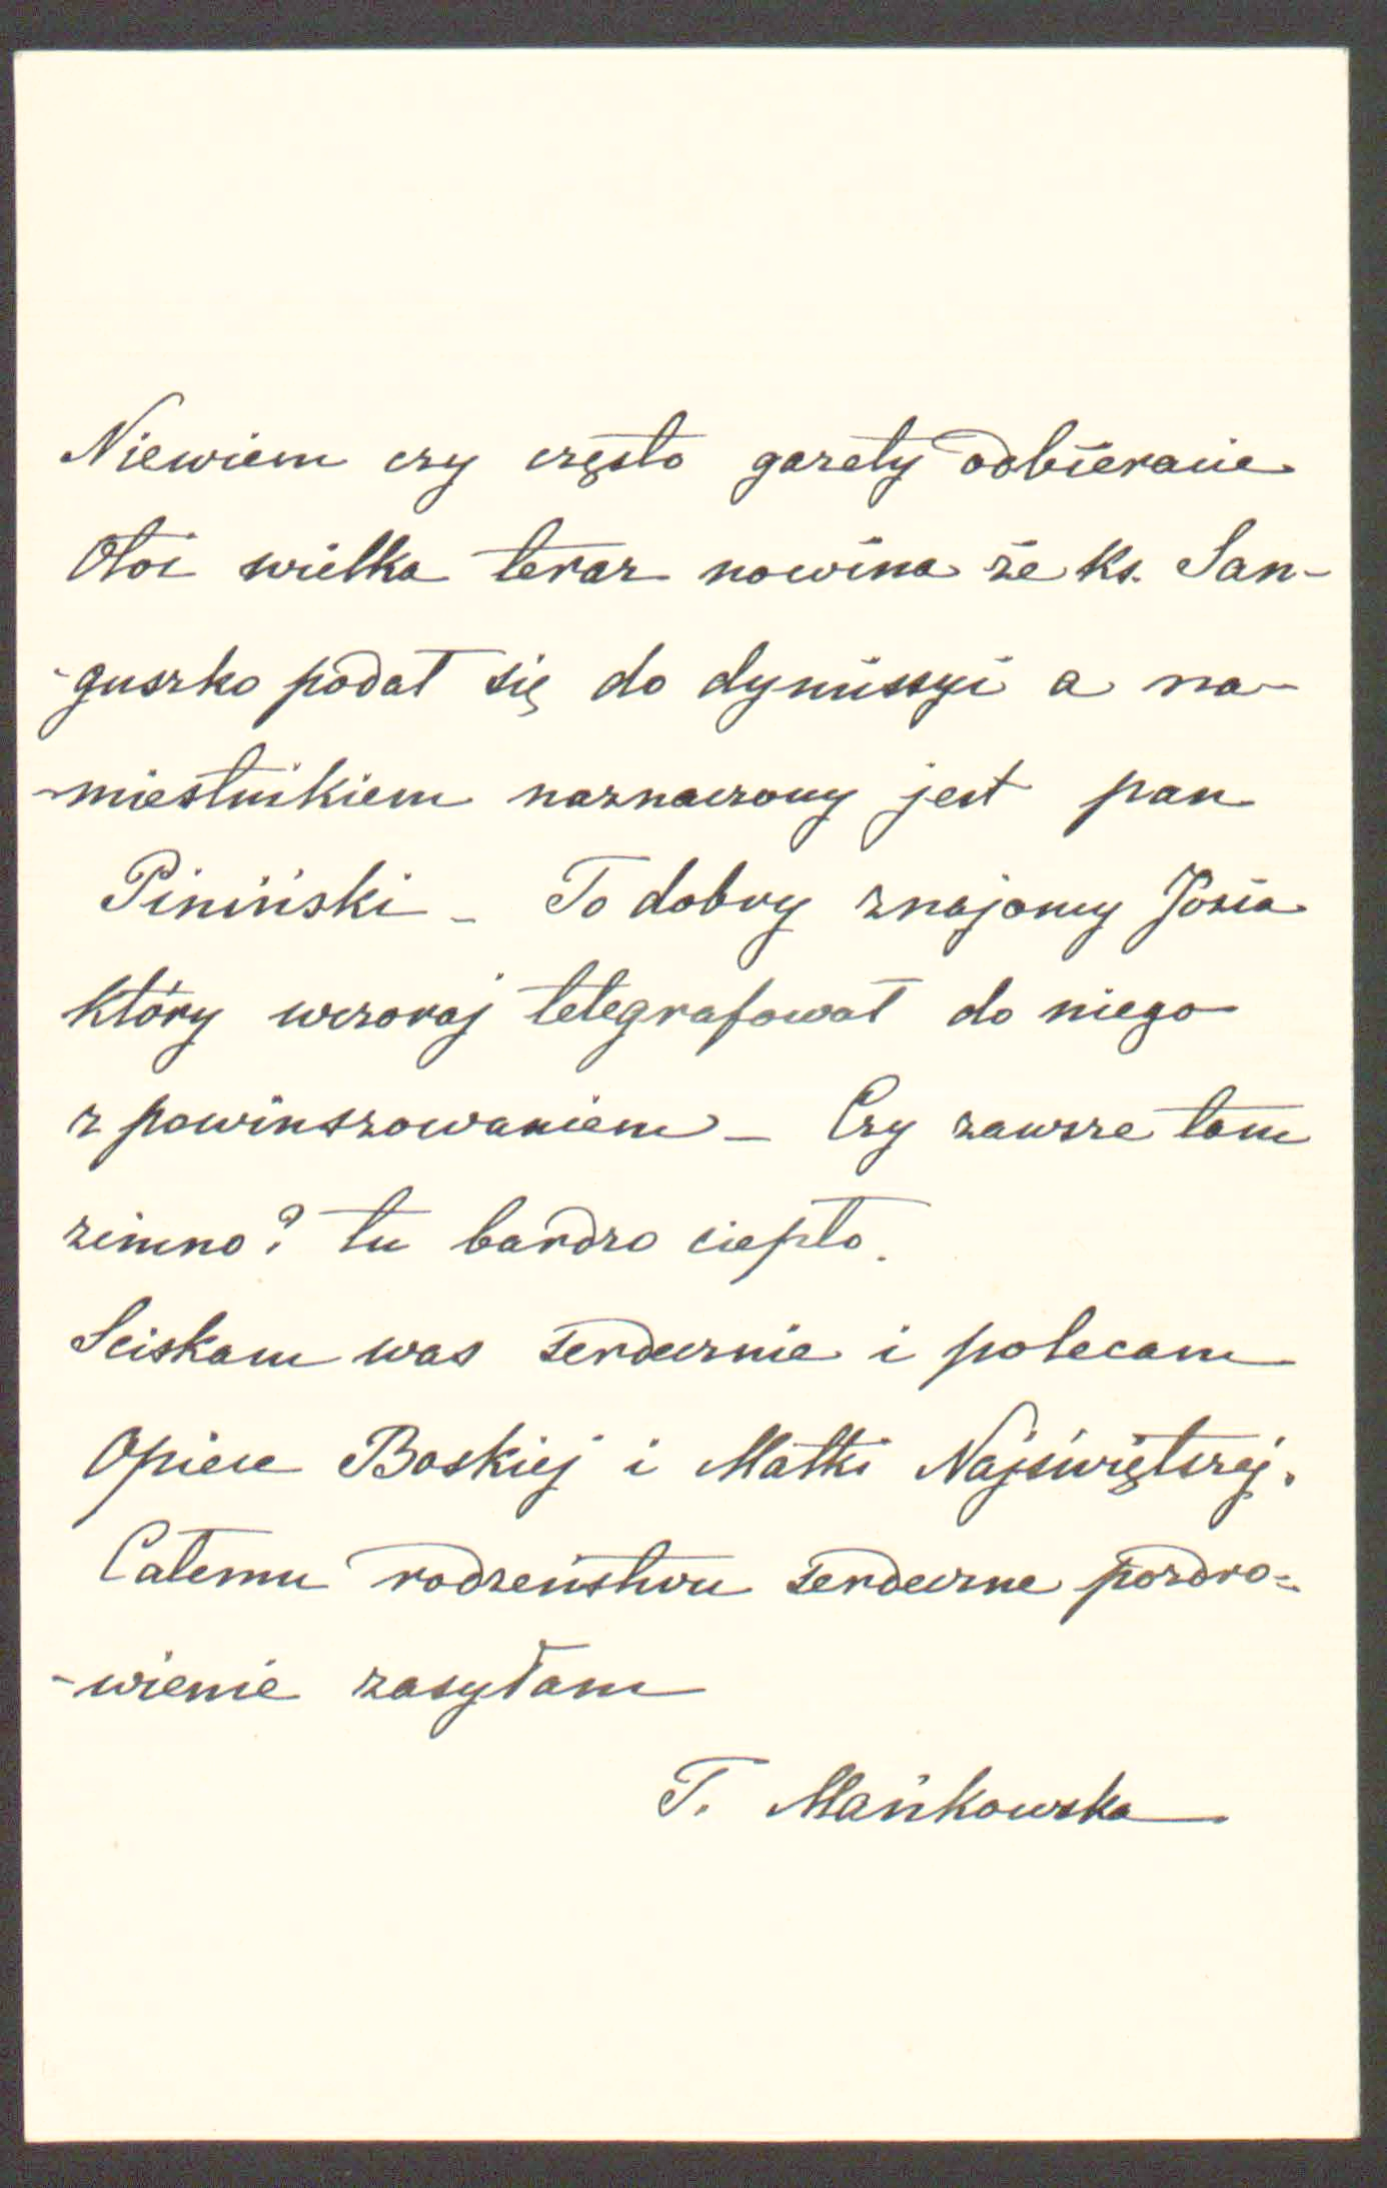 Niewiem czy często gazety odbieracie
Otoż wielka teraz nowina że ks. San-
-guszko podał się do dymissyi a na-
-miestnikiem naznaczony jest pan
Piniński - To dobry znajomy Józia
który wczoraj telegrafował do niego
z powinszowaniem - Czy zawsze tam
zimno? tu bardzo ciepło.
Sciskam was serdecznie i polecam
Opiece Boskiej i Matki Najświętszej.
Całemu rodzeństwu serdeczne pozdro=
-wienie zasyłam
T. Mańkowska